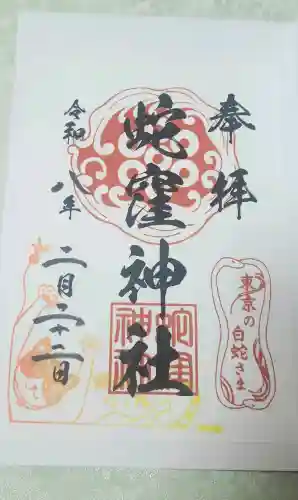 奉拝
蛇窪神社
令和八年
二月二十二日
東京の
白蛇さま
蛇窪
神社